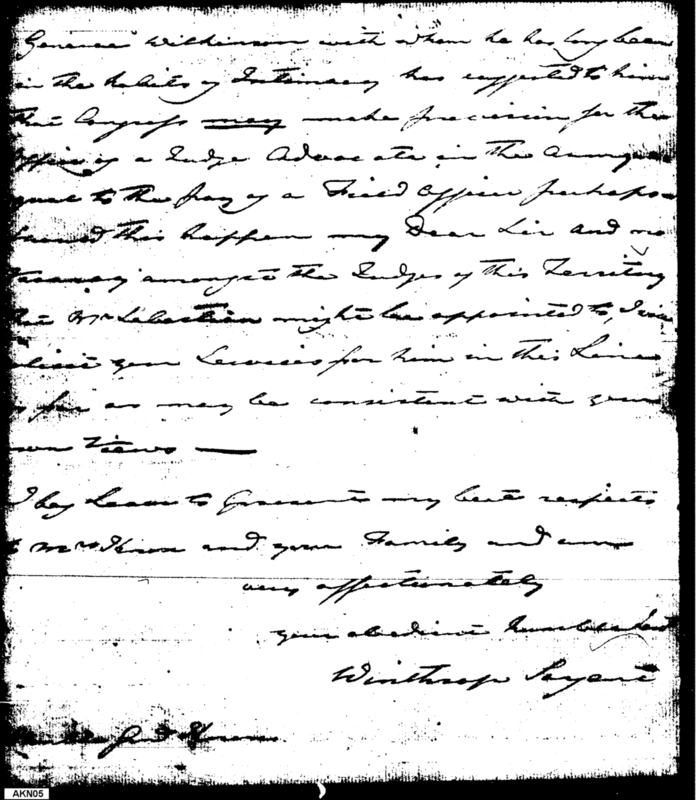 General Wilkinson with whom he has long been
in the habits of Intimacy has suggested to him
that Congress may make provision for the
office of a Judge Advocate in the Army
equal to the pay of a Field officer perhaps
should this happen my Dear Sir and no
Vacancy amongst the Judges of this Territory
that Mr Sebastian might be appointed to, I
solicit your Services for him in this Line
as far as may be consistent with your
own Views —
I beg Leave to present my best respects
to Mrs Knox and your Family and am
very affectionately
your obedient humble Servt
Winthrop Sargent
Genl Knox
AKN05